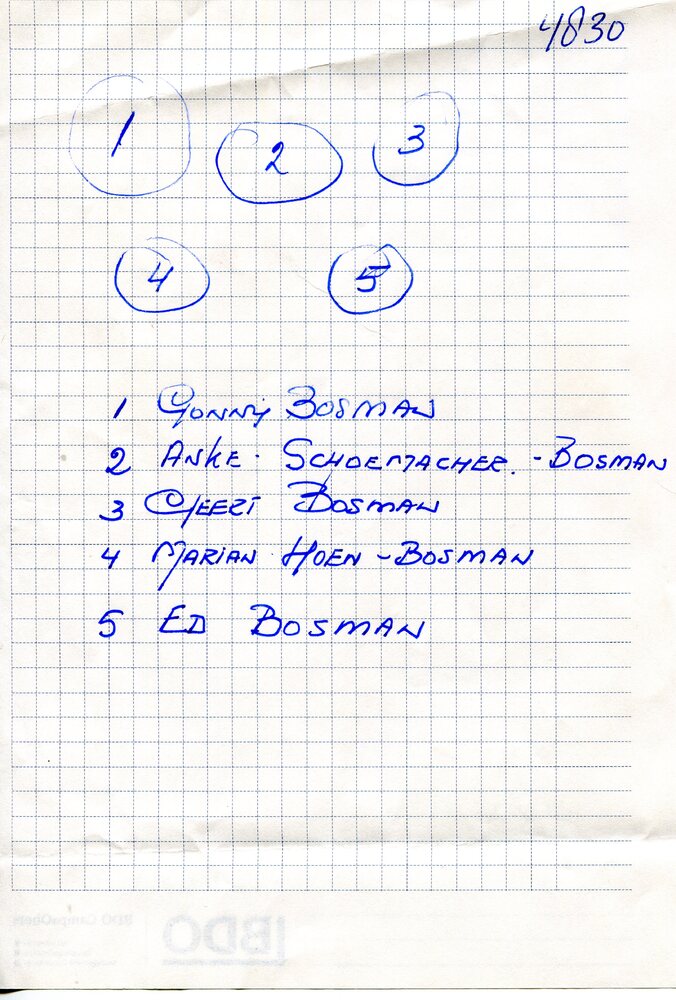 4830
1 2 3
4 5
1 Gonny Bosman
2 Anke Schoemacher - Bosman
3 Geert Bosman
4 Marian Hoen - Bosman
5 Ed Bosman
BDO CampsObers
BDO